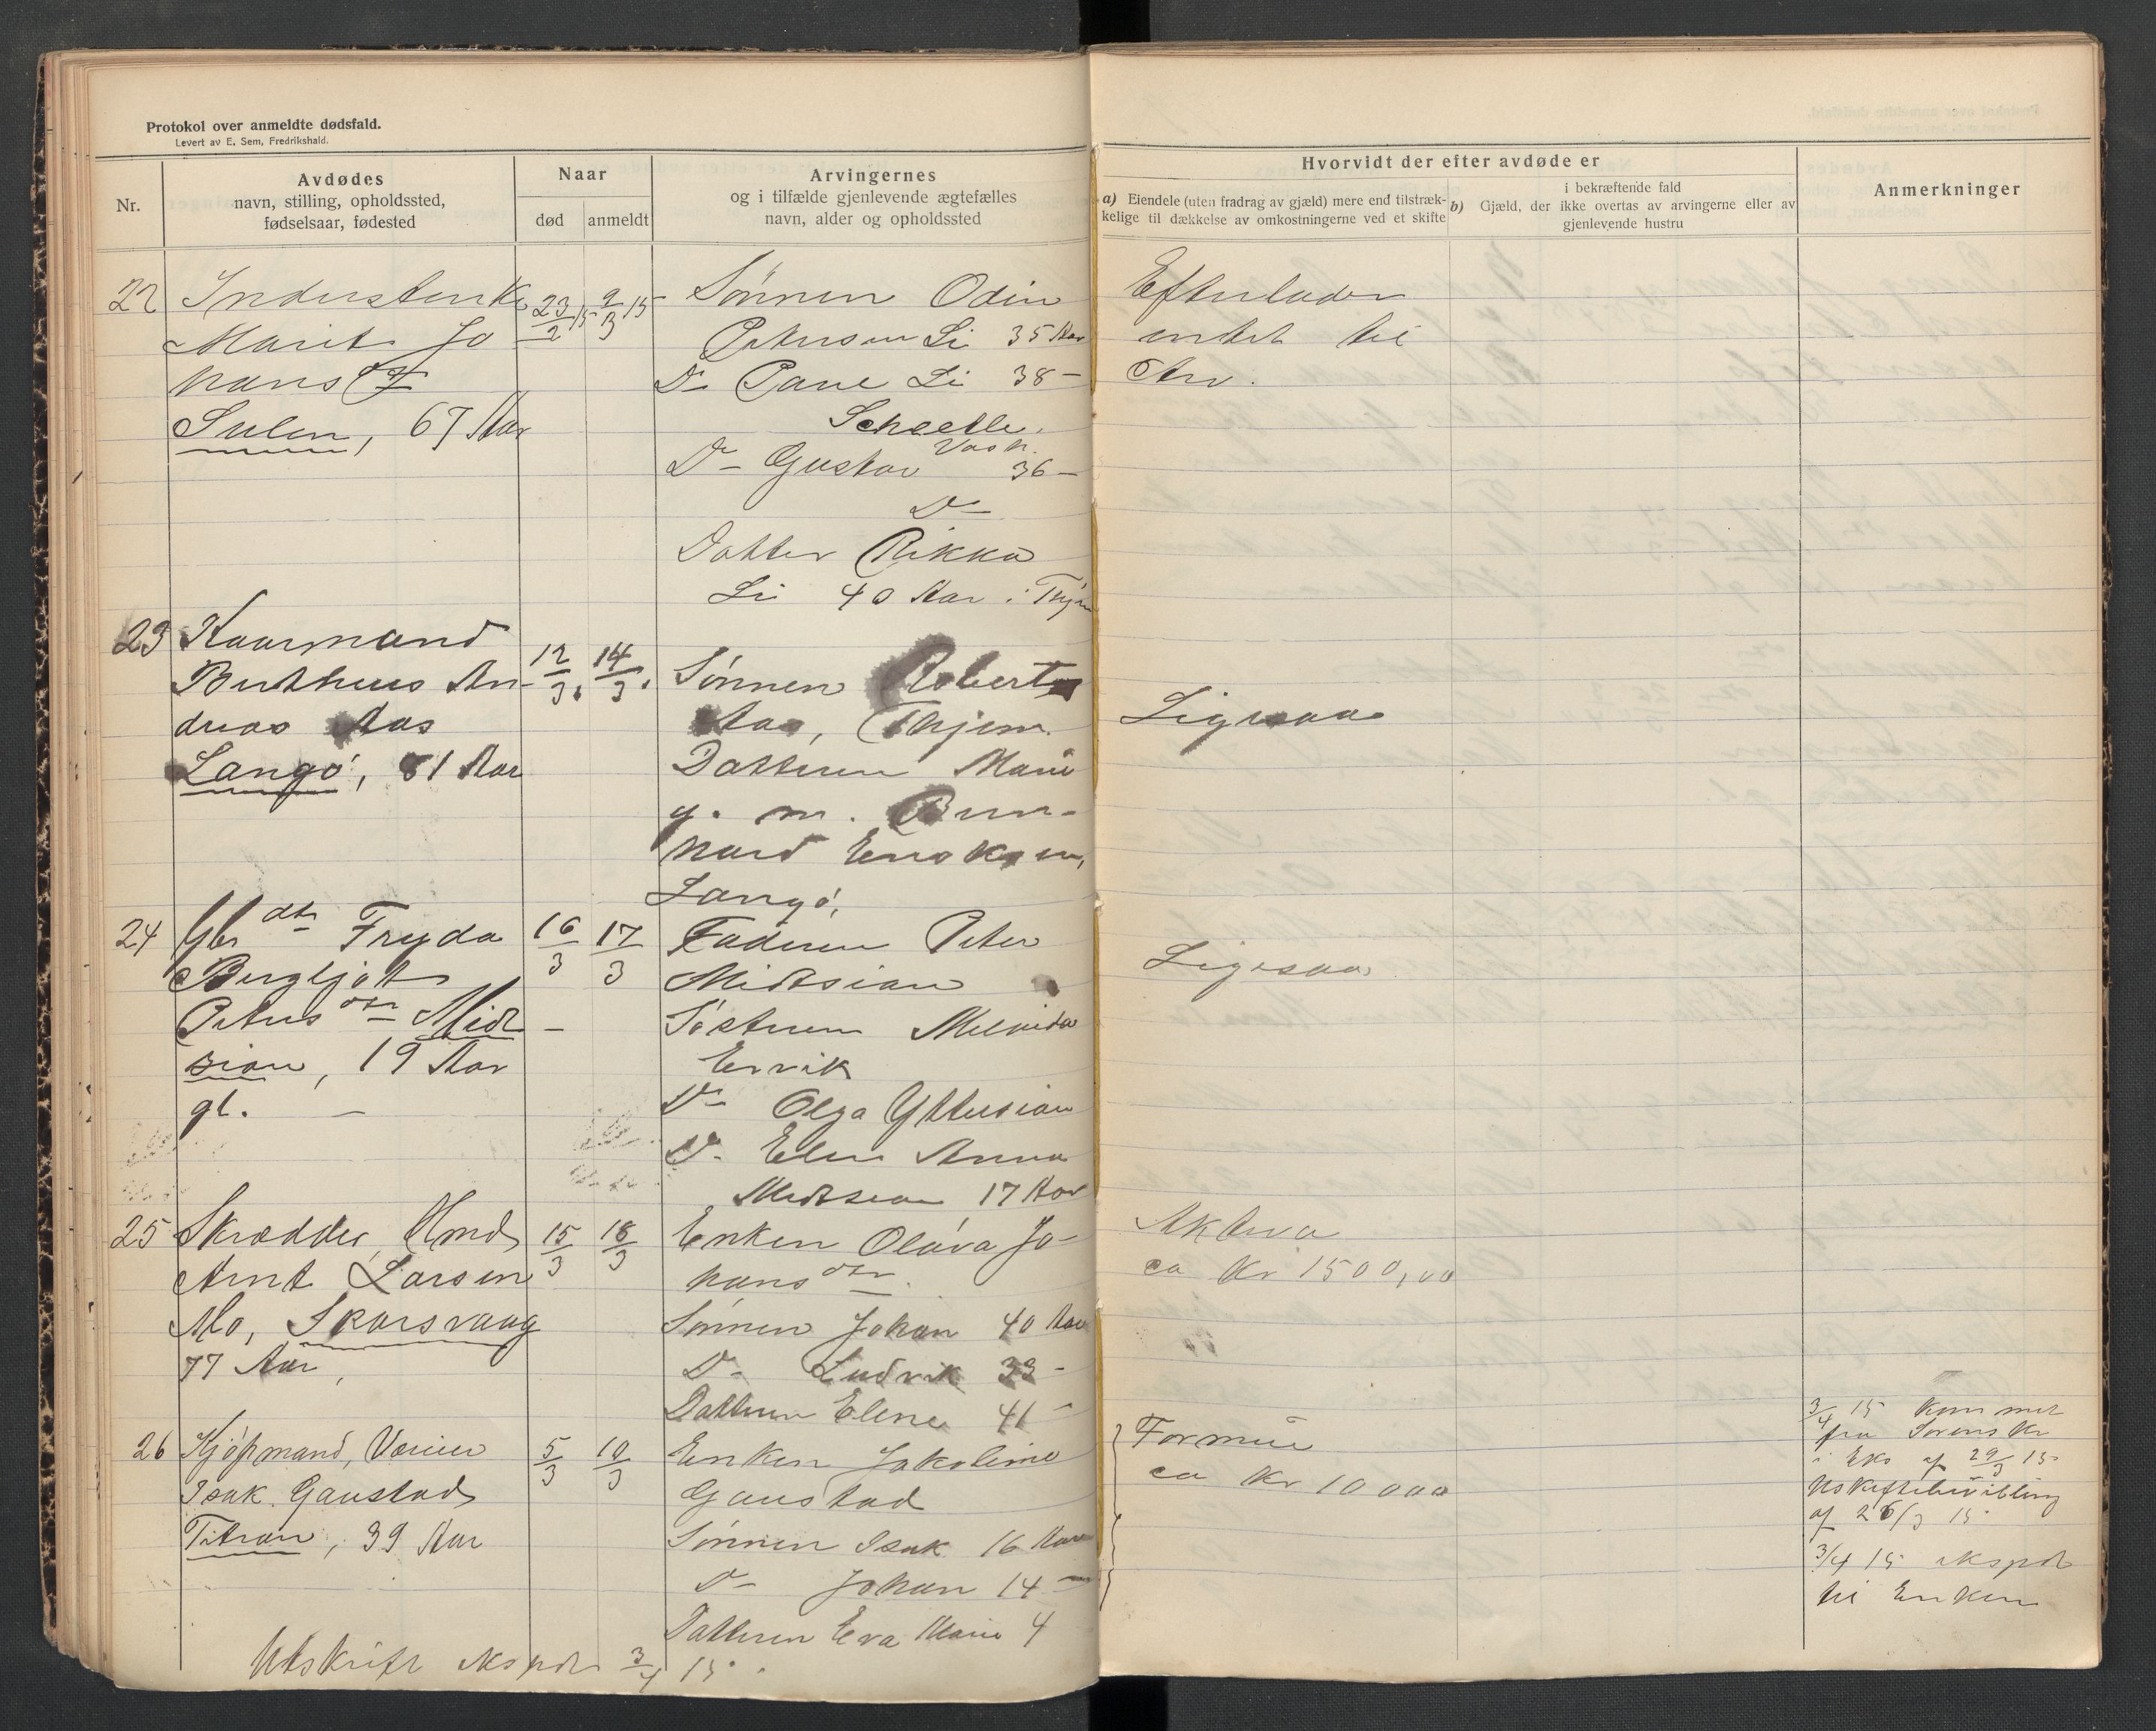 Protokol over anmeldte dødsfald.
Levert av E. Sem, Fredrikshald.
Nr.
Avdødes
navn, stilling, opholdssted,
fødselsaar, fødested
Naar
død
anmeldt
Arvingernes
og i tilfælde gjenlevende ægtefælles
navn, alder og opholdssted
22
Inderstenke
Marit Jo
hansd
Sulen, 67 Aar
23/2 15
9/3 15
Sønnen Odin
Petersen Li 35 Aar
Do Pane Li 38 –
Scheelle.
Vash.
Do – Gustav 36 –
Do –
Datter Rikka
Li 40 Aar i Thjem
23
Kaarmand
Bertheus An-
dreas Aas
Langø, 81 Aar
12/3.
14/3.
Sønnen Robert
Aas, Thjem.
Datteren Marie
g. m. Bern-
hard Enoksen,
Langø.
24
Gbr dtr Fryda
Bergljot
Petersdtr Midt
sian, 19 Aar
gl. –
16/3
17/3
Faderen Peter
Midtsian
Søsteren Melvida
Ervik
Do – Olga Yttersian
Do. Elen Anna
Midtsian 17 Aar
25
Skrædder, Kmd
Arnt Larsen
Mo, Skarsvaag
77 Aar,
15/3
18/3
Enken Olava Jo-
hansdtr.
Sønnen Johan 40 Aar
Do – Ludvik 33 –
Datteren Eline 41 –
26
Kjøpmand, Værier
Isak Gaustad
Titran, 39 Aar
5/3
10/3
Enken Jakoline
Gaustad
Sønnen Isak 16 Aar
Do – Johan 14 –
Datteren Eva Marie 4
Utskrift ekspdt 3/4 15.
Hvorvidt der efter avdøde er
a) Eiendele (uten fradrag av gjæld) mere end tilstræk-
kelige til dækkelse av omkostningerne ved et skifte
i bekræftende fald
b) Gjæld, der ikke overtas av arvingerne eller av
gjenlevende hustru
Anmerkninger
Efterlader
intet til
Arv.
Ligesaa
Ligesaa
Aktiva
ca Kr 1500,00
Formue
ca Kr 10000
3/4 15 kommet
fra Sorenskr
i Eks af 29/3 15
Uskiftebevilling
af 26/3 15
3/4 15 ekspdt
til Enken